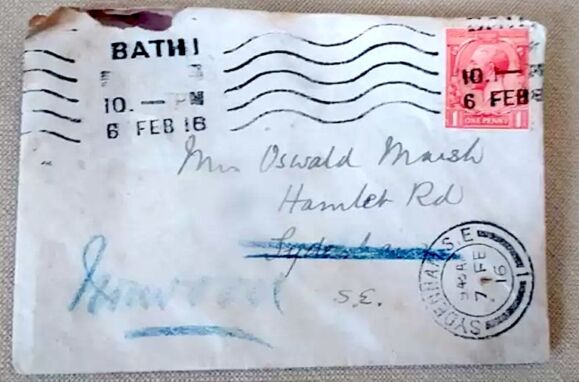 BATH 1
10. — PM
6 FEB 16
BATH
10. —
6 FEB
ONE PENNY
1 1
Mrs Oswald Marsh
Hamlet Rd
Sydenham
S.E.
Norwood
SYDENHAM S.E
9 45 AM
7 FE
16
1